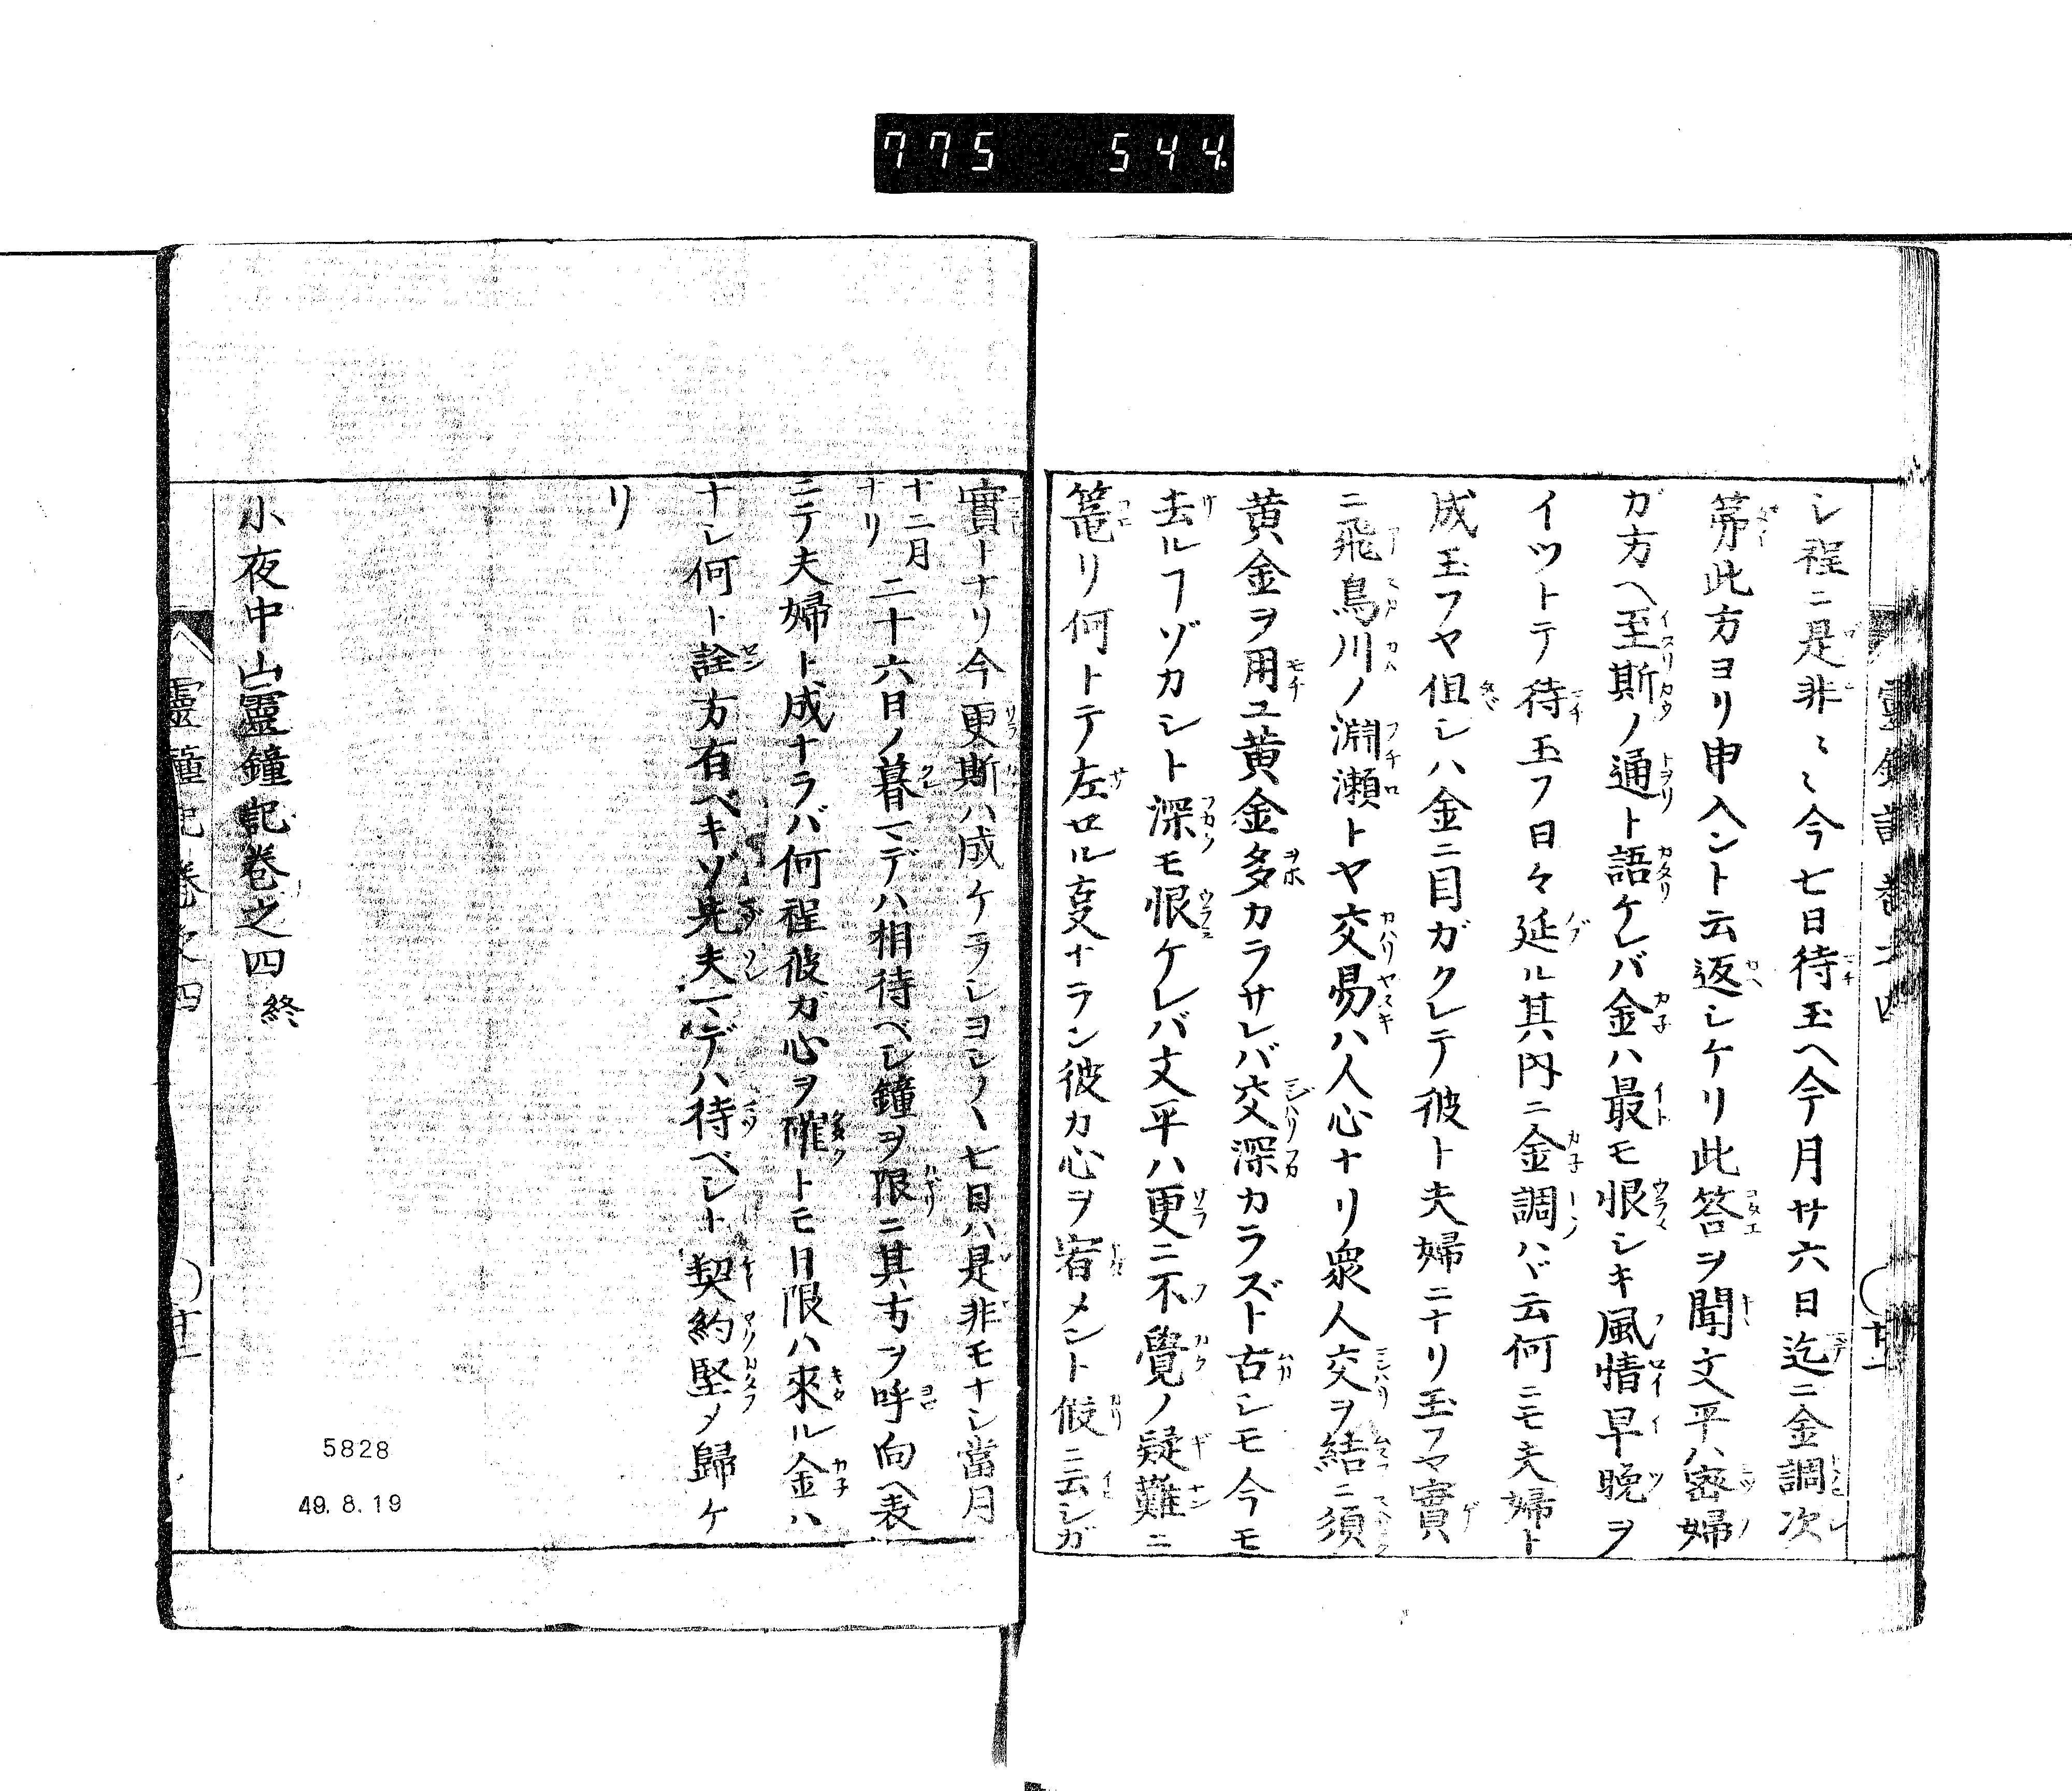 775 544.
シ程ニ是非〻〻今七日待玉ヘ今月廿六日迄ニ金調次
第此方ヨリ申入ント云返シケリ此答ヲ聞文平ハ密婦
ガ方ヘ至斯ノ通ト語ケレバ金ハ最モ恨シキ風情早晩ヲ
イツトテ待玉フ日々延ル其内ニ金調ハヾ云何ニモ夫婦ト
成玉フヤ伹シハ金ニ目ガクレテ彼ト夫婦ニナリ玉フヤ實
ニ飛鳥川ノ淵瀬トヤ交易ハ人心ナリ衆人交ヲ結ニ須
黄金ヲ用ユ黄金多カラサレバ交深カラズト古シモ今モ
去ルヿゾカシト深モ恨ケレバ文平ハ更ニ不覺ノ疑難ニ
篭リ何トテ左ロル亊ナラン彼カ心ヲ宥メント假ニ云シガ
實トナリ今更斯ハ成ケラシヨシ〳〵七日ハ是非モナシ當月
十二月ナリ 二十六日ノ暮マデハ相待ベシ鐘ヲ限ニ其方ヲ呼向ヘ表
ニテ夫婦ト成ナラバ何程彼ガ心ヲ確トモ日限ハ來ル金ハ
ナシ何ト詮方有ベキゾ夫マデハ待ベシト契約堅メ歸ケ
リ
小夜中山靈鐘記巻之四 終
靈鐘記巻之四
5828
49. 8. 19